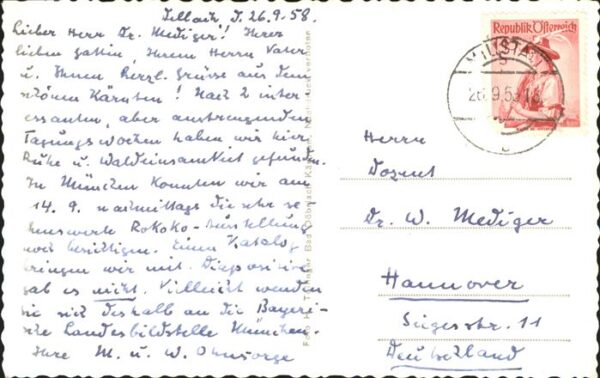 26.9.58.
Lieber Herr Dr. Mediger! Ihrer
lieben Gattin, Ihrem Herrn Vater
u. Ihnen herzl. Grüsse aus dem
schönen Kärnten! Nach 2 inter-
essanten, aber anstrengenden
Tagungswochen haben wir hier
Ruhe u. Waldeinsamkeit gefunden.
In München konnten wir am
14. 9. nachmittags die sehr se-
henswerte Rokoko-Ausstellung
noch besichtigen. Einen Katalog
bringen wir mit. Diapositive
gab es nicht. Vielleicht wenden
Sie sich deshalb an die Bayeri-
sche Landesbildstelle München.
Ihre M. u. W. Ohnsorge
Republik Österreich
26.9.58
Herrn
Dozent
Dr. W. Mediger
Hannover
Siegesstr. 11
Deutschland